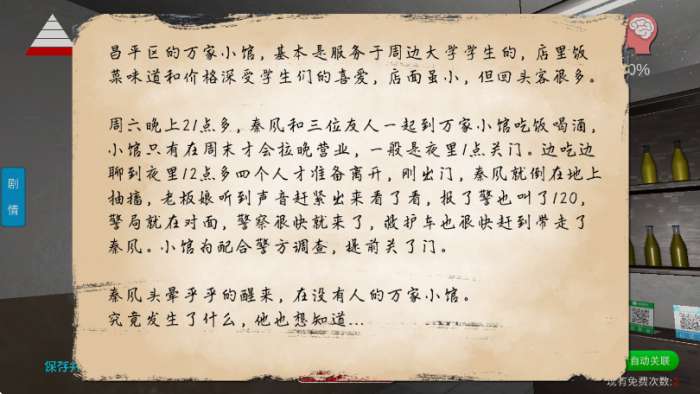 昌平区的万家小馆，基本是服务于周边大学学生的，店里饭
菜味道和价格深受学生们的喜爱，店面虽小，但回头客很多。
周六晚上21点多，秦风和三位友人一起到万家小馆吃饭喝酒，
小馆只有在周末才会拉晚营业，一般是夜里1点关门。边吃边
聊到夜里12点多四个人才准备离开，刚出门，秦风就倒在地上
抽搐，老板娘听到声音赶紧出来看了看，报了警也叫了120，
警局就在对面，警察很快就来了，救护车也很快赶到带走了
秦风。小馆为配合警方调查，提前关了门。
秦风头晕乎乎的醒来，在没有人的万家小馆。
究竟发生了什么，他也想知道...
剧
情
0%
保存
自动关联
现有免费次数: